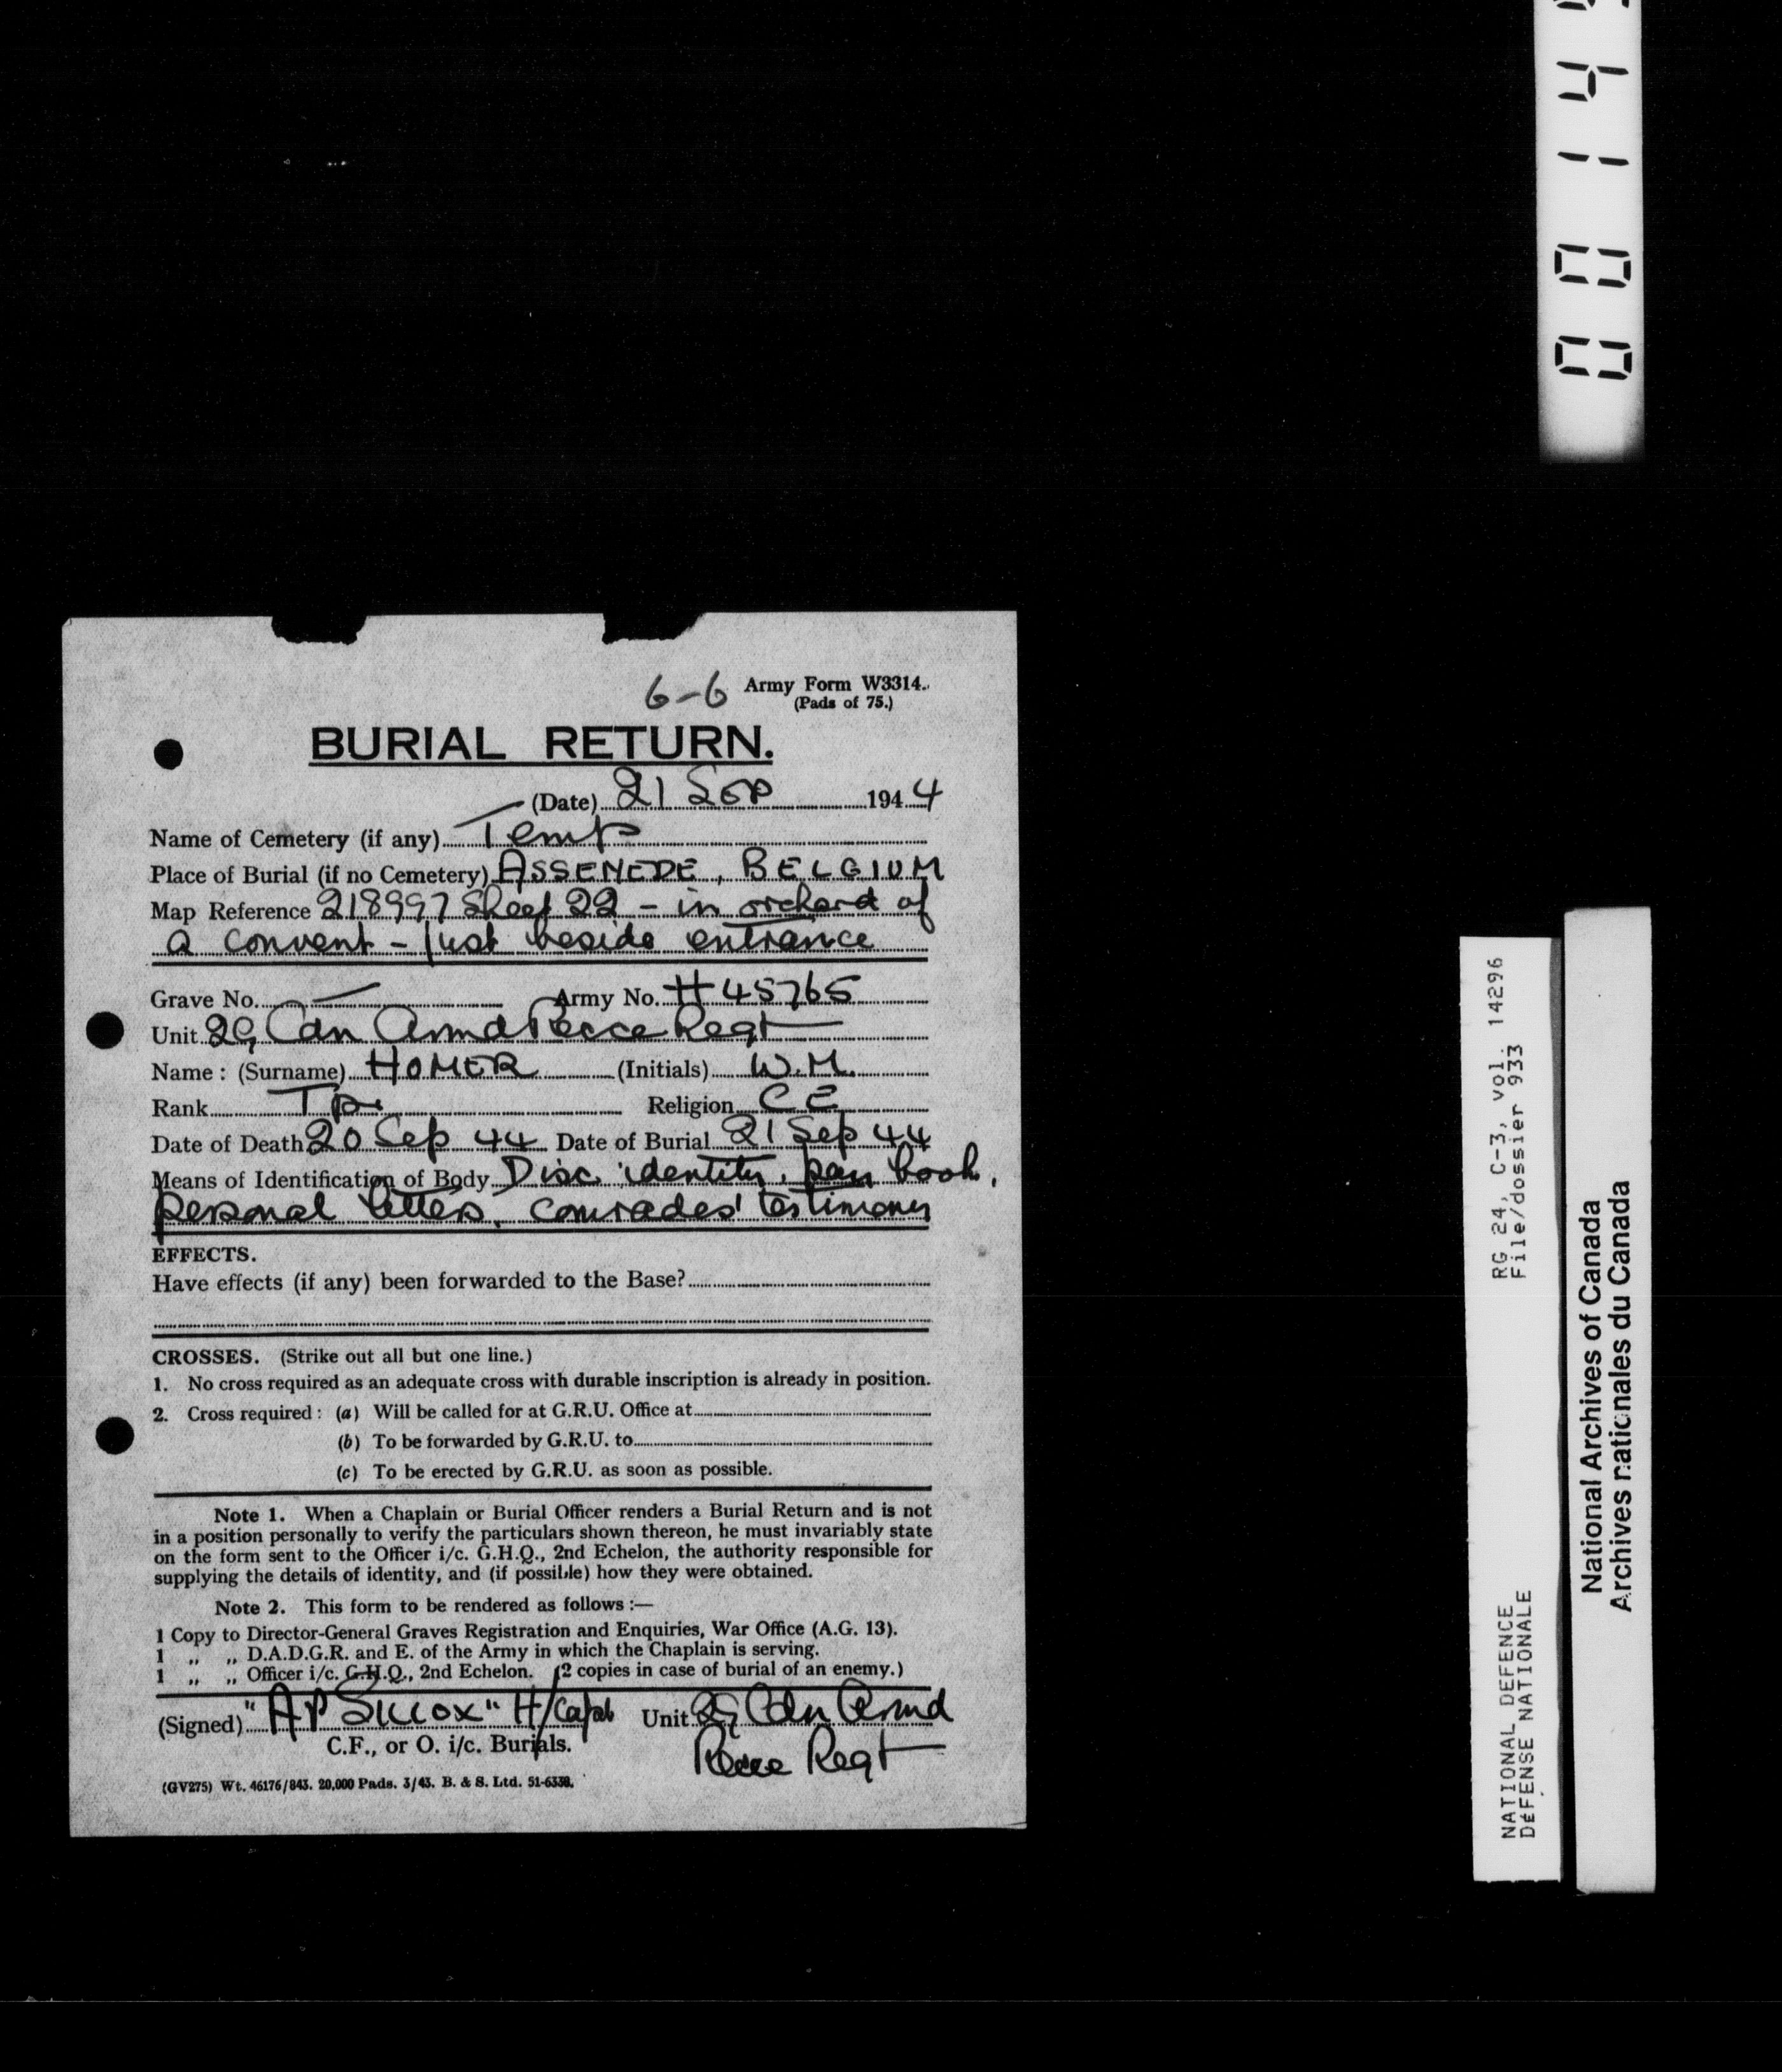 6-6 Army Form W3314.
(Pads of 75.)
BURIAL RETURN.
(Date) 21 Sep 1944
Name of Cemetery (if any) Temp
Place of Burial (if no Cemetery) ASSENEDE, BELGIUM
Map Reference 218997 Sheet 22 - in orchard of
a convent - just beside entrance
Grave No. — Army No. H 45765
Unit 29 Cdn Armd Recce Regt
Name: (Surname) HOMER (Initials) W.M.
Rank Tpr Religion C E
Date of Death 20 Sep 44 Date of Burial 21 Sep 44
Means of Identification of Body Disc identity, pay book,
personal letters, comrades' testimony
EFFECTS.
Have effects (if any) been forwarded to the Base?
CROSSES. (Strike out all but one line.)
1. No cross required as an adequate cross with durable inscription is already in position.
2. Cross required: (a) Will be called for at G.R.U. Office at
(b) To be forwarded by G.R.U. to
(c) To be erected by G.R.U. as soon as possible.
Note 1. When a Chaplain or Burial Officer renders a Burial Return and is not
in a position personally to verify the particulars shown thereon, he must invariably state
on the form sent to the Officer i/c. G.H.Q., 2nd Echelon, the authority responsible for
supplying the details of identity, and (if possible) how they were obtained.
Note 2. This form to be rendered as follows :—
1 Copy to Director-General Graves Registration and Enquiries, War Office (A.G. 13).
1 „ „ D.A.D.G.R. and E. of the Army in which the Chaplain is serving.
1 „ „ Officer i/c. G.H.Q., 2nd Echelon. (2 copies in case of burial of an enemy.)
(Signed) "AP Silcox" H/Capt Unit 29 Cdn Armd
C.F., or O. i/c. Burials. Recce Regt
(GV275) Wt. 46176/843. 20,000 Pads. 3/43. B. & S. Ltd. 51-6338.
0 0 1 4
RG 24, C-3, vol. 14296
File/dossier 933
NATIONAL DEFENCE
DéFENSE NATIONALE
National Archives of Canada
Archives nationales du Canada